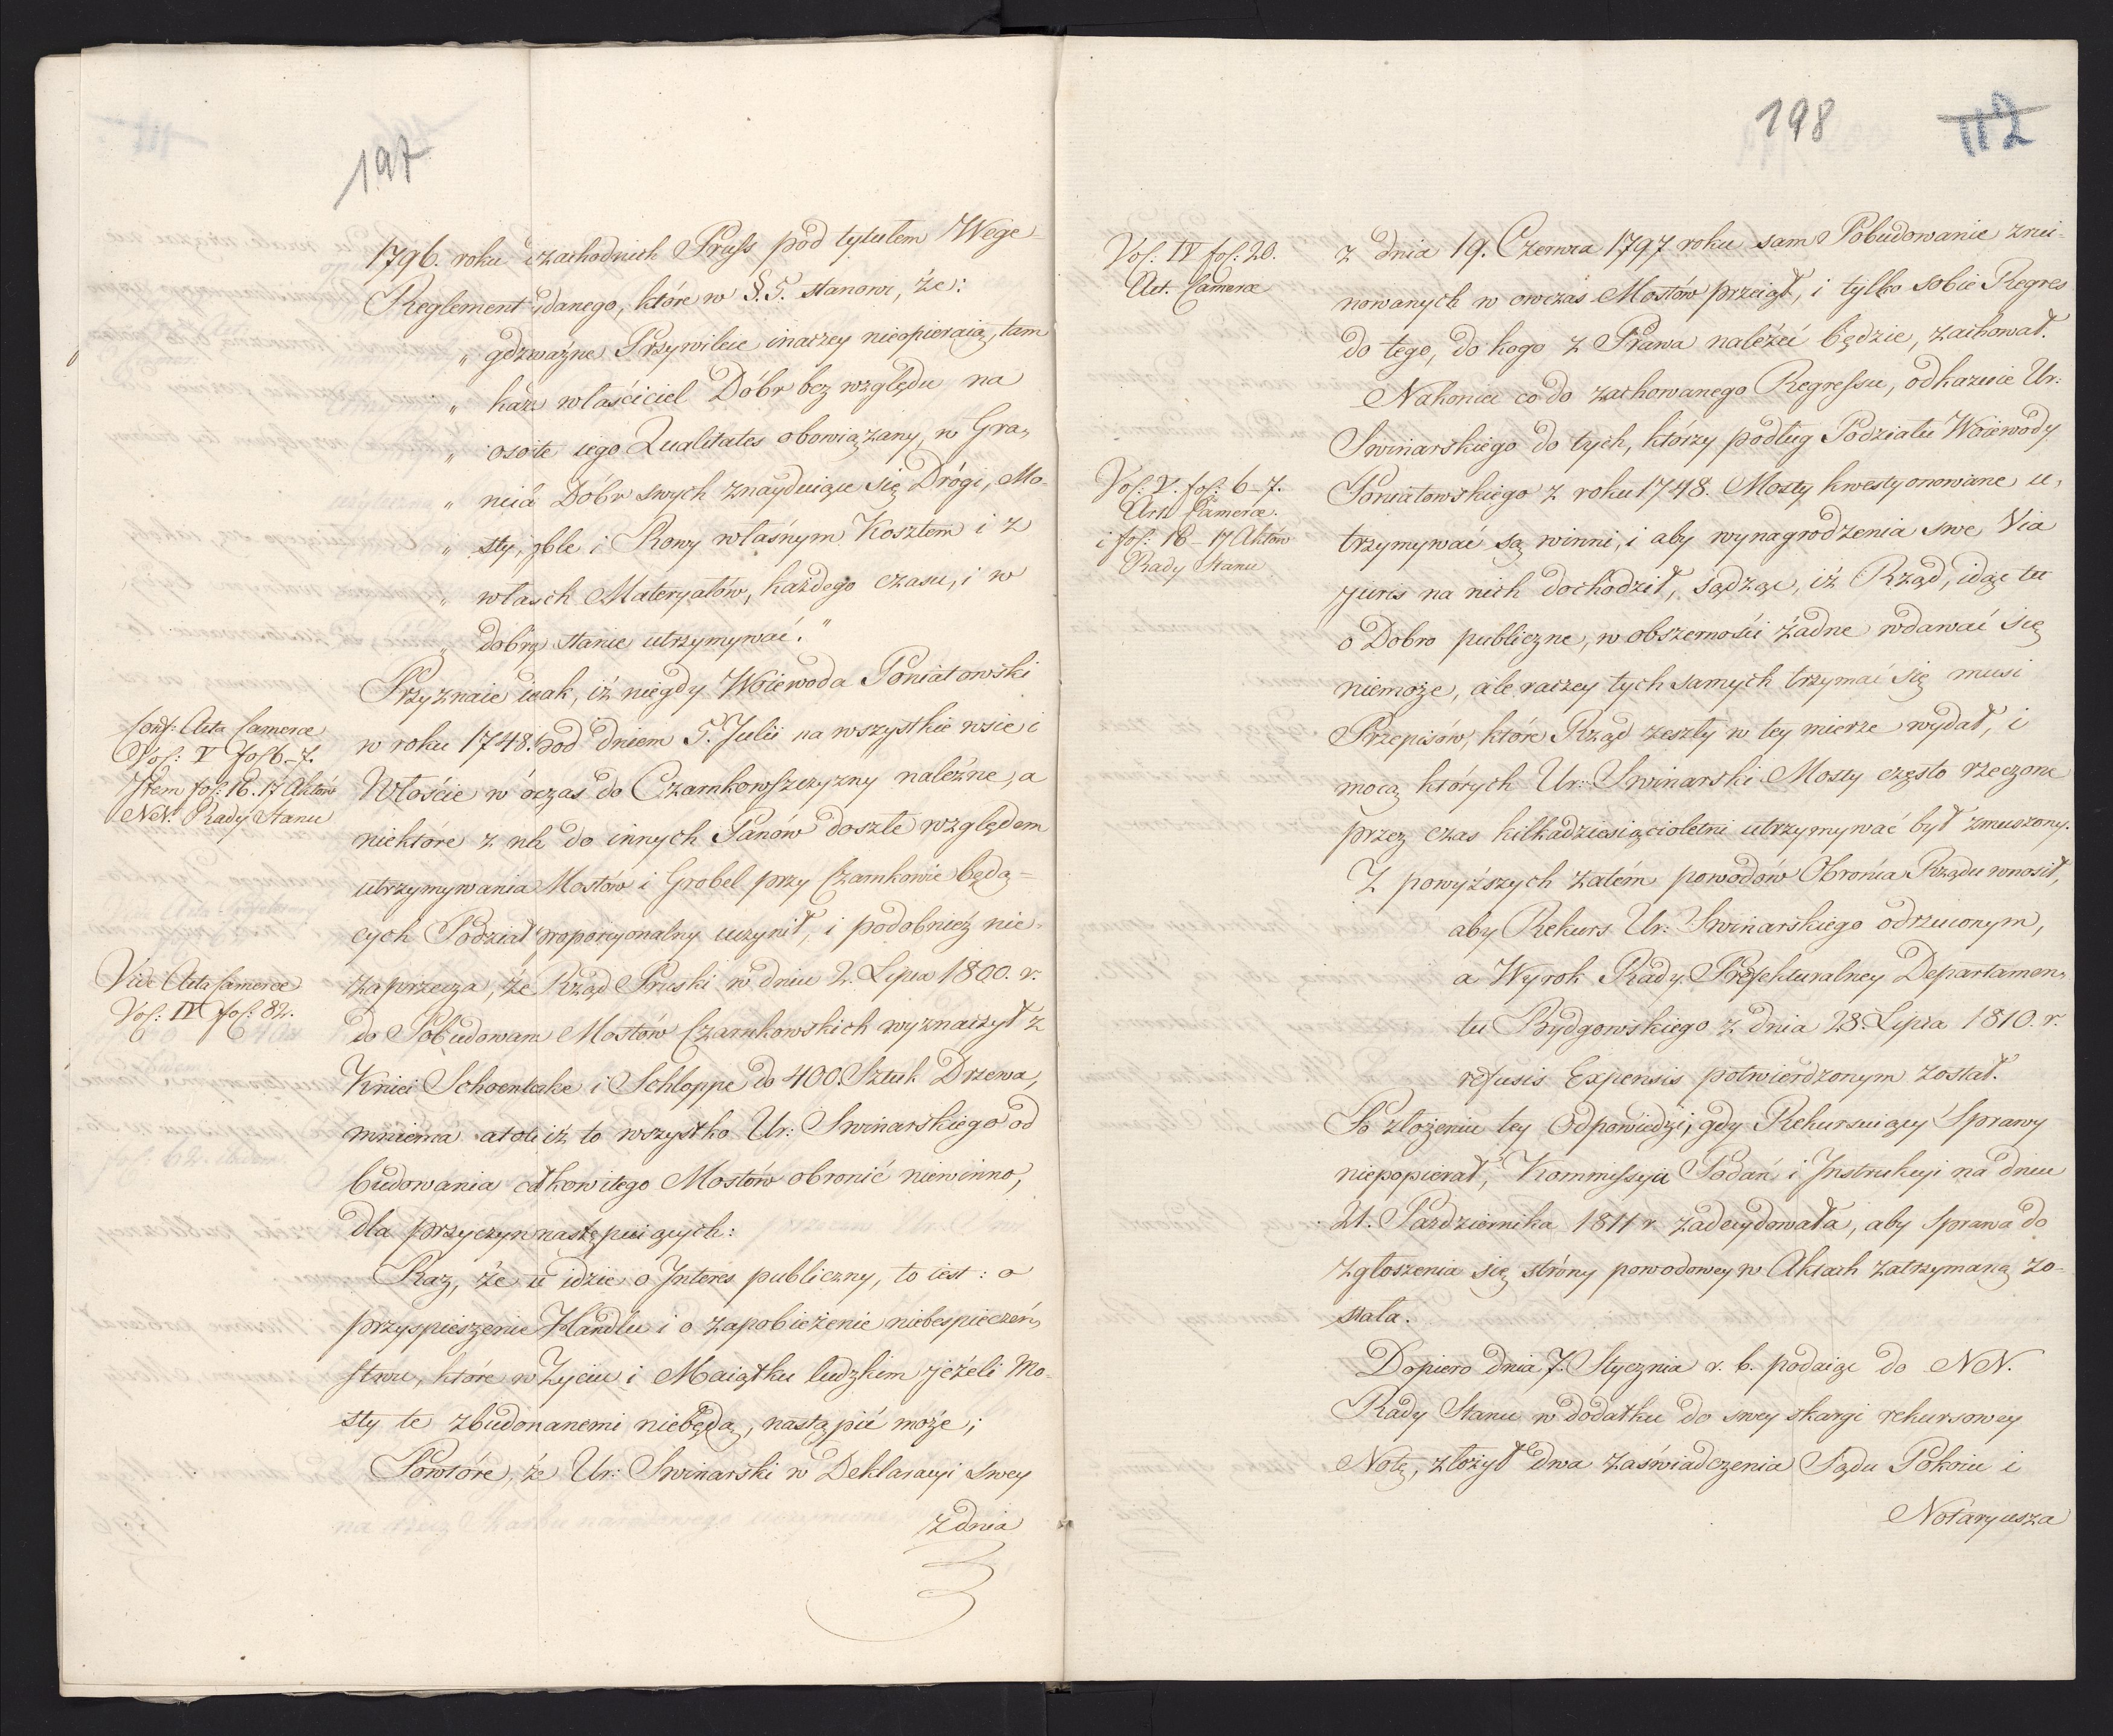 197
1796. roku zachodnich Pruss pod tytułem Wege=
Reglement wydanego, które w §. 5. stanowi, że:
„ gdzie ważne Przywileie inaczey nieopieraią, tam
„ każdy właściciel Dóbr bez względu na
„ osobiste iego Qualitates obowiązany, w Gra„
„ nicach Dóbr swych znayduiące się Drogi, Mo„
„ sty, Groble i Rowy własnym Kosztem i z
„ własnych Materyałów, każdego czasu, i w
„ dobrym stanie utrzymywać."
Przyznaie iednak, iż niegdy Woiewoda Poniatowski
w roku 1748. pod dniem 5. Julii na wszystkie wsie i
Włoście w ówczas do Czarnkowszczyzny należne, a
niektóre z nich do innych Panów doszłe względem
utrzymywania Mostów i Grobel przy Czarnkowie będą=
cych Podział proporcyonalny uczynił, i podobnież nie=
zaprzecza, że Rząd Pruski w dniu 2. Lipca 1800. r.
do Pobudowania Mostów Czarnkowskich wyznaczył z
Kniei Schoenlanke i Schloppe do 400. Sztuk Drzewa,
mniema atoli iż to wszystko Ur: Swinarskiego od
budowania całkowitego Mostów obronić niewinno,
dla przyczyn następuiących:
Raz, że tu idzie o Jnteres publiczny, to iest: o
przyspieszenie Handlu i o zapobieżenie niebespieczeń„
stwu, które w Życiu i Maiątku ludzkim jeżeli Mo„
sty te zbudowanemi niebędą, nastąpić może;
Powtóre, że Ur: Swinarski w Deklaracyi swey
z dnia
Conf: Acta Camerae
Vol: V fol 6-7.
Item fol: 16. 17 Aktów
NN. Rady Stanu
Vide Acta Camerae
Vol: IV fol: 82.
198
112
z dnia 19. Czerwca 1797 roku sam Pobudowanie zrui=
nowanych w owczas Mostów przeiął, i tylko sobie Regres
do tego, do kogo z Prawa należeć będzie, zachował.
Nakoniec co do zachowanego Regressu, odkazuie Ur:
Swinarskiego do tych, którzy podług Podziału Woiewody
Poniatowskiego z roku 1748. Mosty kwestyonowane u„
trzymywać są winni, i aby wynagrodzenia swe Via
juris na nich dochodził, sądząc, iż Rząd, idąc tu
o Dobro publiczne, w obszerności żadne wdawać się
niemoże, ale raczey tych samych trzymać się musi
Przepisów, które Rząd zeszły w tey mierze wydał, i
mocą których Ur: Swinarski Mosty często rzeczone
przez czas kilkadziesięcioletni utrzymywać był zmuszony.
Z powyższych zatém powodów Obrońca Rządu wnosił,
aby Rekurs Ur: Swinarskiego odrzuconym,
a Wyrok Rady Prefekturalney Departamen„
tu Bydgowskiego z dnia 28. Lipca 1810. r.
refusis Expensis potwierdzonym został.
Po złożeniu tey Odpowiedzi, gdy Rekursuiący Sprawy
niepopierał, Kommissyia Podań i Jnstrukcyi na dniu
21. Pazdziernika 1811 r. zadecydowała, aby Sprawa do
zgłoszenia się strony powodowey w Aktach zatrzymaną zo=
stała.
Dopiero dnia 7. Stycznia r. b. podaiąc do NN.
Rady Stanu w dodatku do swey skargi rekursowey
Notę, złożył dwa zaświadczenia Sądu Pokoiu i
Notaryusza
Vol: IV fol: 20.
Act. Camerae
Vol: V. fol: 6-7.
Act. Camerae.
i fol: 16-17 Aktów
Rady Stanu